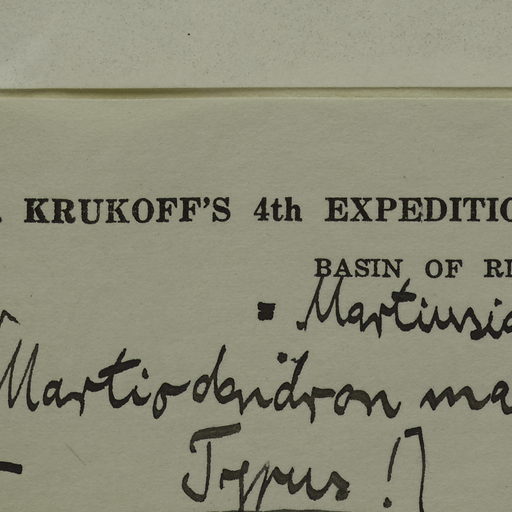 . KRUKOFF'S 4th EXPEDITIO
BASIN OF RI
= Martiusia
Martiodendron ma
Typus !]